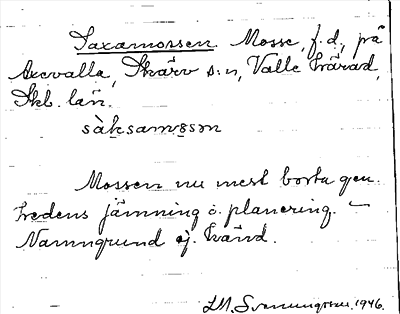 Saxamossen. Mosse, f.d., på
Axevalla, Skärv s:n, Valle härad,
Skb. län.
sàksamɷsən
Mossen nu mest borta gen.
tredens jämning o. planering. –
Namngrund ej känd.
1946.